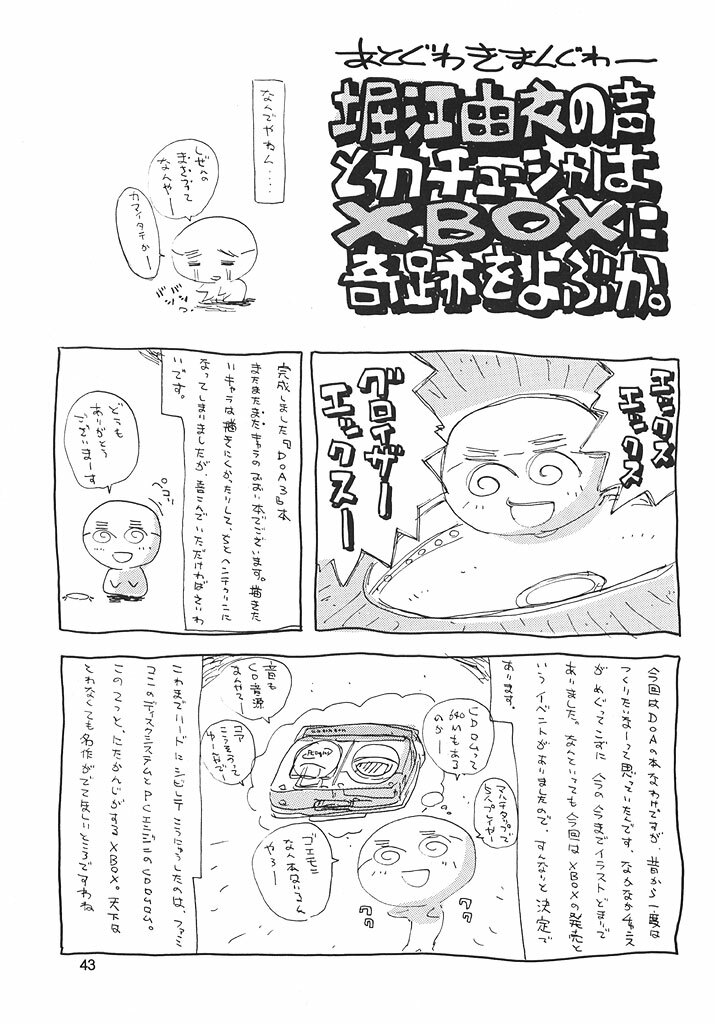 あとぐわきまんぐわー
堀江由衣の声
とカチューシャは
XBOXに
奇跡をよぶか。
なんでやねん....
しぜんの
まさつで
なんやー
カマイタチかー
エックス
エックス
グロイザー
エックスー
完成しました『DOA3』本
またまたまたキャラのおおい本でございます。描きた
いキャラは描きにくかったりして、ちとヘンテコリンに
なってしまいましたが、喜こんでいただければさいわ
いです。
どうも
ありがとう
ございまーす
ペコリ
今回はDOAの本なわけですが、昔から一度は
つくりたいなーって思っていたんです。なかなかチャンス
がめぐってこずに今の今までイラストどまりで
ありました。なんといっても今回はXBOXの発売と
いうイベントがありましたので、すんなりと決定で
あります。
マルチタップで
5人プレイヤー
CDROMって
540Mもある
のかー
音も
CD音源
なんやてー
コア
こうそうって
ゆーなので
ゴエモン
なん本はいるん
やろー
これまでハードにシビレてこうにゅうしたのは、ファミ
コンのディスクシステムとPCエンジンのCDROM。
このてっと、にたかんじがするXBOX。天下は
とれなくても名作がでてほしいところですわね
43